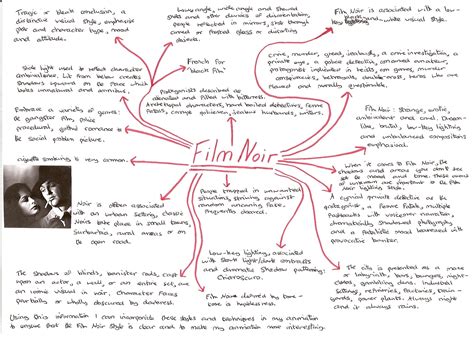 Tragic or bleak conclusion, a
distinctive visual style, emphasise
plot and character type, mood
and attitude.
Low-angle, wide angle and skewed
shots and other devices of disorientation,
people reflected in mirrors, shots through
curved or frosted glass or distorting
objects.
Film Noir is associated with a low-
key black-and-white visual style.
French for
'black film'
Side light used to reflect character
ambivalence. Lit from below creates
shadows upwards on the face which
looks unnatural and ominous.
Protagonists described as
alienated and filled with bitterness.
Archetypal characters, hard boiled detectives, femme
fatales, corrupt policemen, jealous husbands, writers.
crime, murder, greed, jealously, a crime investigation, a
private eye, a police detective, concerned amateur,
protagonist implicated in heists, con games, murder
conspiracies, betrayals, double-cross, heroes who are
flawed and morally questionable.
Embrace a variety of genres:
the gangster film, police
procedural, gothic romance to
the social problem picture.
Film Noir: strange, erotic,
ambivalent and cruel. Dream-
like, brutal, low-key lighting
and unbalanced compositions
emphasised.
cigarette smoking is very common.
Film Noir
When it comes to Film Noir, the
shadows and areas you don't see
of unknown are important to the film
noir lighting style.
People trapped in unwanted
situations, striving against
random uncaring fate.
frequently doomed.
Noir is often associated
with an urban setting, classic
noirs take place in small towns,
suburbia, rural areas or on
the open road.
A cynical private detective as the
protagonist, a femme fatale, multiple
flashbacks with voiceover narration,
dramatically shadowed photography
and a fatalistic mood leavened with
provocative banter.
Low-key lighting, associated
with stark light/dark contrasts
and dramatic shadow patterning:
Chiaroscuro.
The shadows of blinds, banister rods, cast
upon an actor, a wall, or an entire set, are
an iconic visual in noir. Character faces
partially or wholly obscured by darkness.
Film Noir defined by tone -
tone is hopelessness.
The city is presented as a maze
or labyrinth, bars, lounges, night-
clubs, gambling dens. Industrial
settings, refineries, factories, train-
yards, power plants. Always night
and it always rains.
Using this information I can incorporate these styles and techniques in my animation
to ensure that the Film Noir style is clear and to make my animation more interesting.